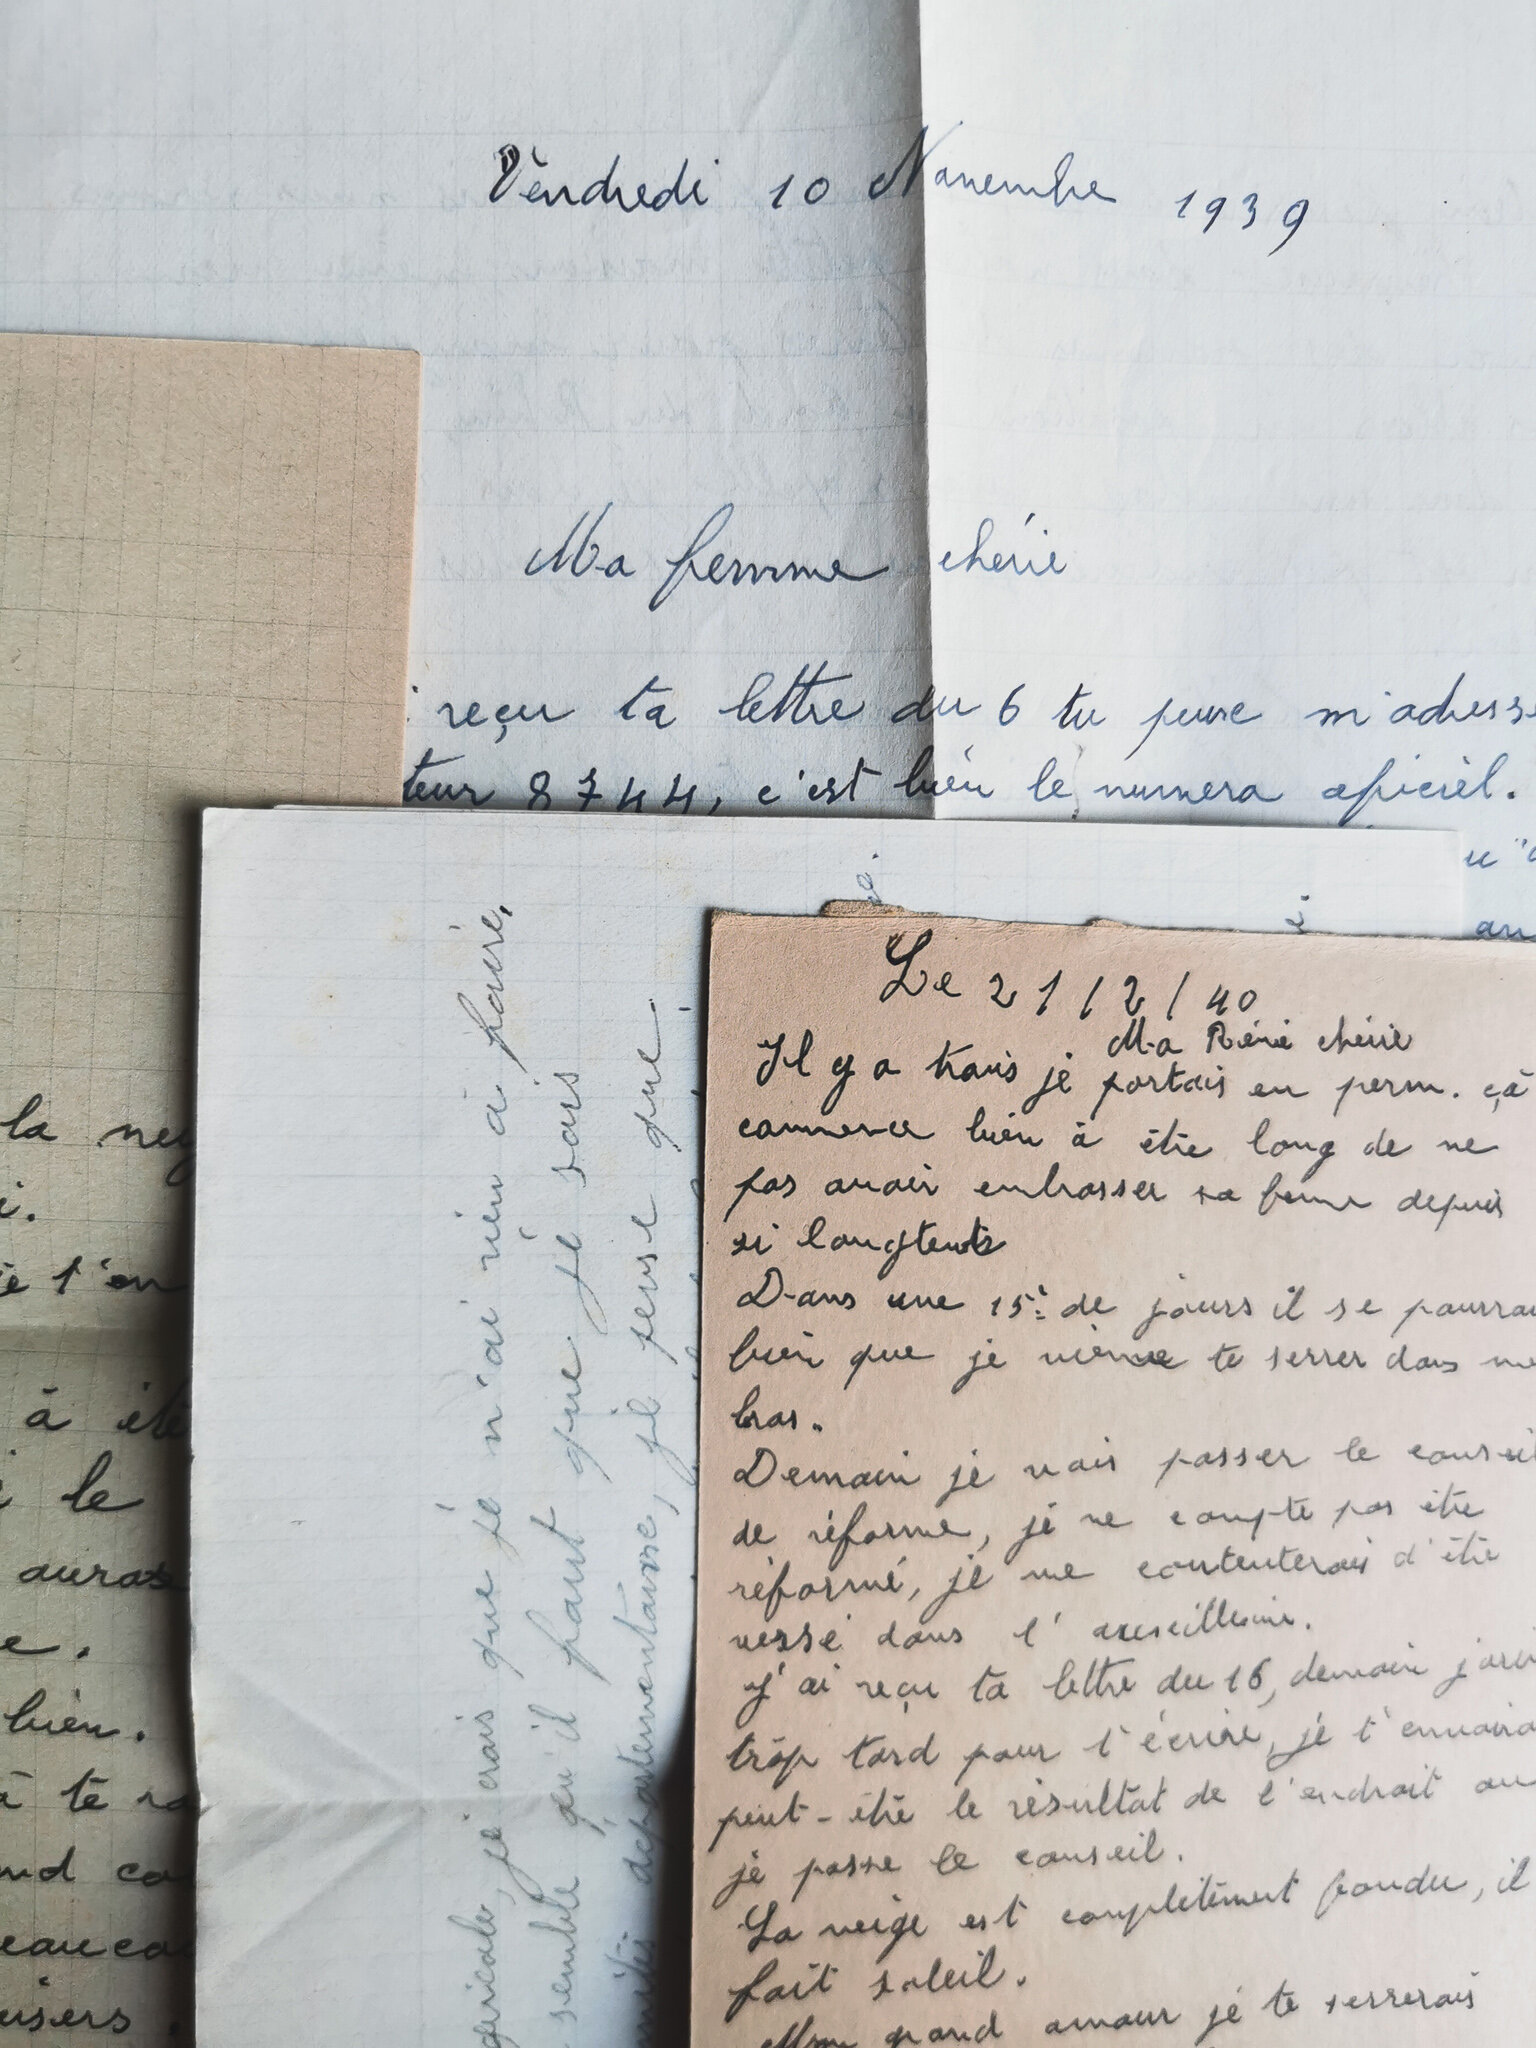 Vendredi 10 Novembre 1939
Ma femme chérie
reçu ta lettre du 6 tu peuse m'adresse
teur 8744, c'est bién le numero oficièl.
la nei
i.
t'en
à êtè
le
auras
e.
bièn.
à tè
nd
eauco
aisers.
agricole, jé crois què jè n'ai rièn à faire,
semblè qu'il faut que jè sois
départementause, jè pense què
Le 21/2/40
Ma Réné chérie
Il y a trois je partais en perm. çà
commence bièn à être long de ne
pas avoir embrasser sa femme depuis
si longtemts
Dans une 15è de jours il se pourrai
bièn que je viènne te serrer dans me
bras.
Demain je vais passer le conseil
de réforme, jé ne compte pas être
réformé, je me contenterais d'être
versé dans l'auxeilleirie.
J'ai reçu ta lettre du 16, demain j'orai
trop tard pour t'écrire, jè t'envoirai
peut-être le résultat de l'endroit ou
jè passe le conseil.
La neige est complètement fondu, il
fait soleil.
Mon grand amour jè te serrerais